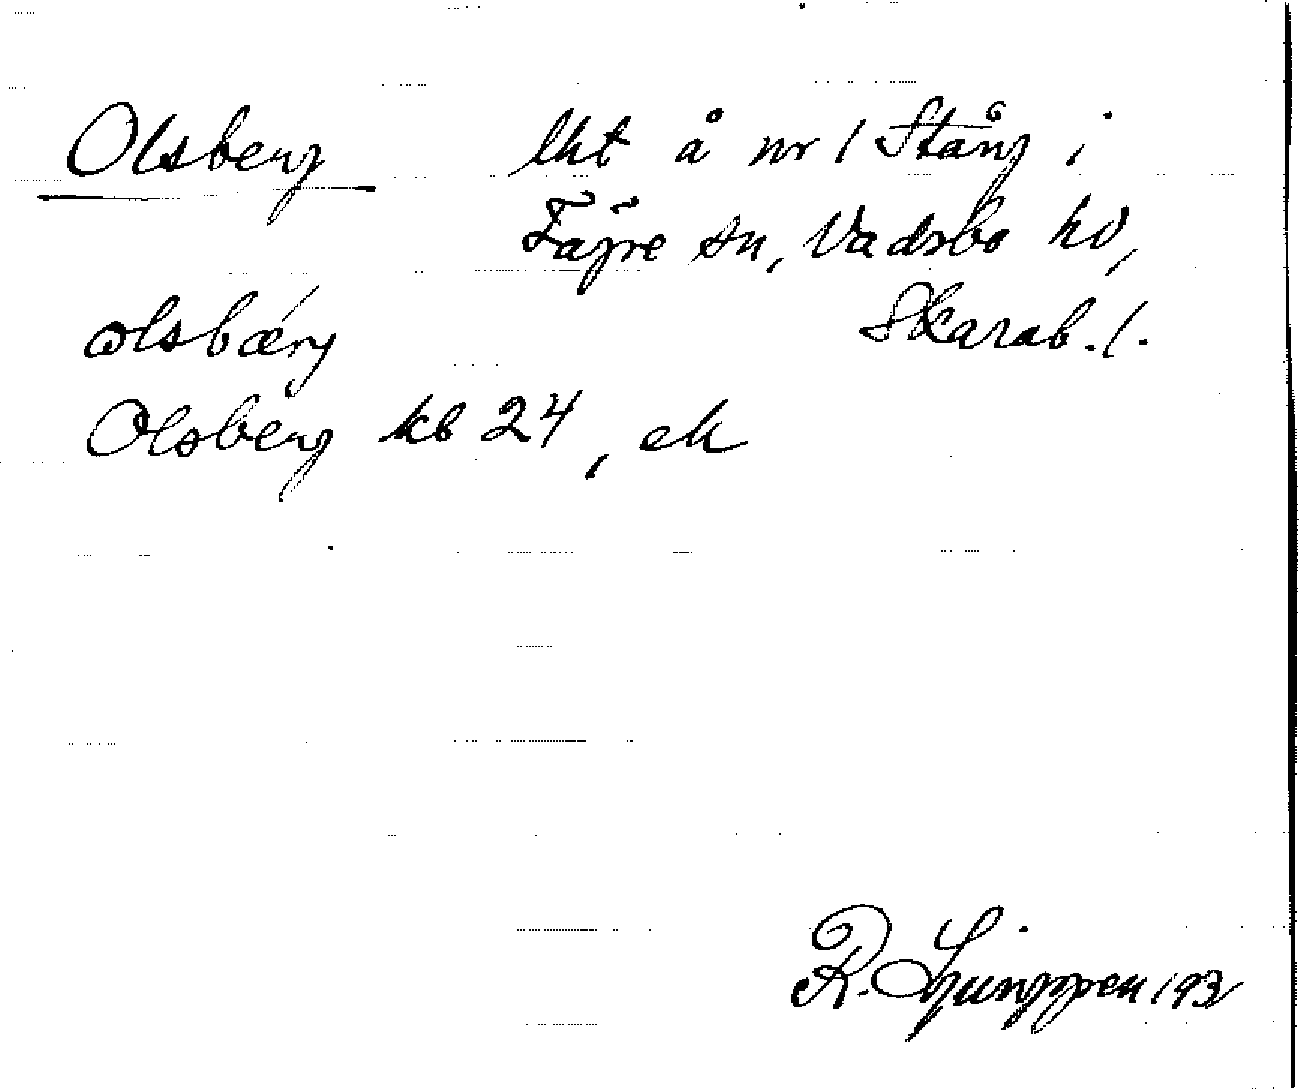 Olsberg lht å nr 1 Stång i
Fägre sn, Vadsbo hd,
Skarab. l.
olsbærj
Olsberg kb 24, ek
R. Ljunggren 193